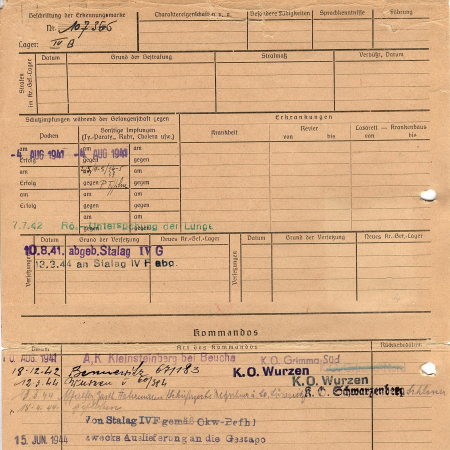 Beschriftung der Erkennungsmarke
Nr. 107366
Lager: IV B
Charaktereigenschaft u. s. w.
Besondere Fähigkeiten
Sprachkenntnisse
Führung
Strafen im Kr.-Gef.-Lager
Datum
Grund der Bestrafung
Strafmaß
Verbüßt, Datum
Schutzimpfungen während der Gefangenschaft gegen
Erkrankungen
Pocken
Sonstige Impfungen
(Ty.-Paraty., Ruhr, Cholera usw.)
Krankheit
Revier
von bis
Lazarett - Krankenhaus
von bis
am
-4. AUG 1941
Erfolg
am
Erfolg
am
Erfolg
am
-4. AUG 1941
gegen
am
gegen
am
gegen
am
gegen
am
gegen
am
gegen
7.7.42 Rö.-Untersuchung der Lunge
Versetzungen
Datum
Grund der Versetzung
Neues Kr.-Gef.-Lager
Versetzungen
Datum
Grund der Versetzung
Neues Kr.-Gef.-Lager
10.8.41. abgeb. Stalag IV G
13.3.44 an Stalag IV F abg.
Kommandos
Datum
Art des Kommandos
Rückkehrdatum
AUG 1941 A.K Kleinsteinberg bei Beucha K.O. Grimma-Süd
18-12-42 Bennewitz 67/183 K.O. Wurzen
12.3.44 Wurzen K.O. Wurzen
K.O. Schwarzenberg
Von Stalag IV F gemäß Okw-Befhl
15. JUN. 1944 zwecks Auslieferung an die Gestapo